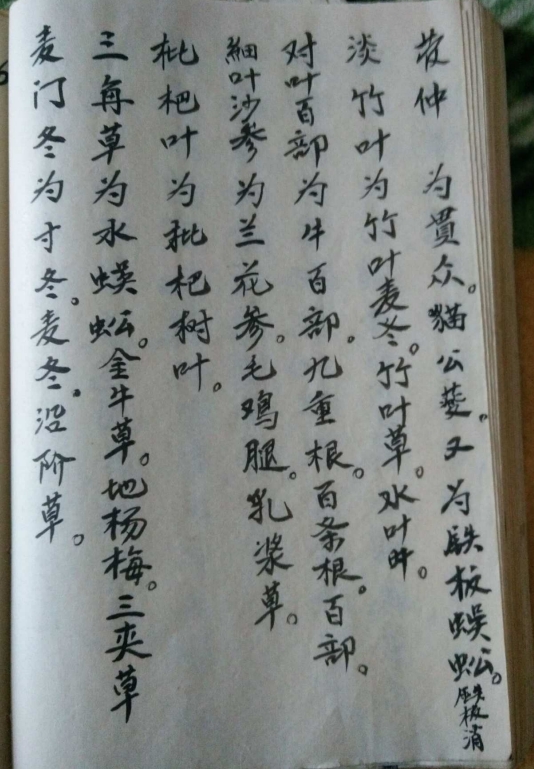 仲 为贯众。猫公薐。又为䥫板蜈蚣。铁板消
淡竹叶为竹叶麦冬。竹叶草。水叶
对叶百部为牛百部。九重根。百条根。百部。
細叶沙参为兰花参。毛鸡腿。乳浆草。
枇杷叶为枇杷树叶。
三每草为水蜈蚣。金牛草。地杨梅。三夹草
麦门冬为寸冬。麦冬。沿阶草。